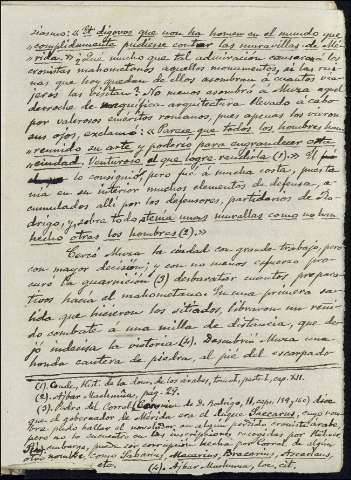 siasmo: «Et digovos que non ha home en el mundo que
complidamente pudiese contar las maravillas de Mé-
rida.» ¿Qué mucho que tal admiración causara á los
cronistas mahometanos aquellos monumentos, si las rui-
nas que hoy quedan de ellos asombran á cuantos via-
jeros las visitan? No menos asombró á Muza aquel
derroche de magnífica arquitectura llevado á cabo
por valerosos eméritos romanos, pues apenas los vieron
sus ojos, exclamó: «Parece que todos los hombres han
reunido su arte y poderío para engrandecer esta
ciudad. Venturoso el que logre rendirla (1).» Él
lo consiguió, pero fué á mucha costa, pues te-
nía en su interior muchos elementos de defensa, a-
cumulados allí por los defensores, partidarios de Ro-
drigo, y, sobre todo, «tenía unas murallas como no han
hecho otras los hombres (2).»
Cercó Muza la ciudad con grande trabajo, pero
con mayor decisión; y con no menos esfuerzo pro-
curó la guarnición (3) desbaratar cuantos prepara-
tivos hacía el mahometano. En una primera sa-
lida que hicieron los sitiados, libraron un reñi-
do combate á una milla de distancia, que de-
jó indecisa la victoria (4). Descubrió Muza una
honda cantera de piedra, al pié del escarpado
(1). Conde, Hist. de la dom. de los árabes, tom. I, parte I, cap. XII.
(2). Ajbar Machmua, pag. 29.
(3). Pedro del Corral (Crónica de D. Rodrigo, II, caps. 149, 150) dice
que el gobernador de Mérida era el duque Sacarus, cuyo nom-
bre pudo hallar el novelador en algún perdido cronista árabe,
pero no lo encuentro en las inscripciones recogidas por Hübner.
Sin embargo, puede ser corrupción hecha por Corral de algún
otro nombre, como Sabarius, Macarius, Bracarius, Ascarius,
etc. (4). Ajbar Machmua, loc. cit.